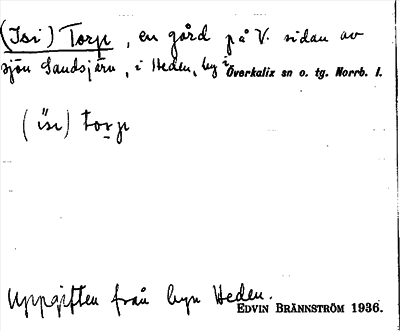 (Isi) Torp, en gård på V. sidan av
sjön Sandsjärv, i Heden, by i Överkalix sn o. tg. Norrb. l.
(ïsi) torp
Uppgiften från byn Heden.
EDVIN BRÄNNSTRÖM 1936.